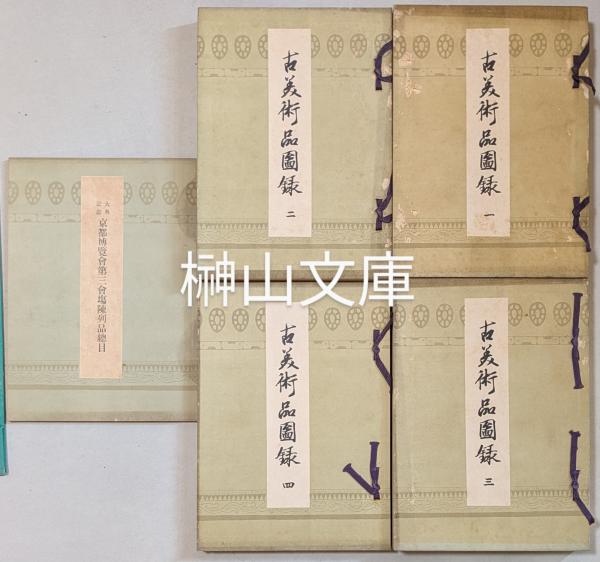 古美術品圖錄 一
古美術品圖錄 二
古美術品圖錄 三
古美術品圖錄 四
大典
記念
京都博覽會第三會塲陳列品總目
榊山文庫